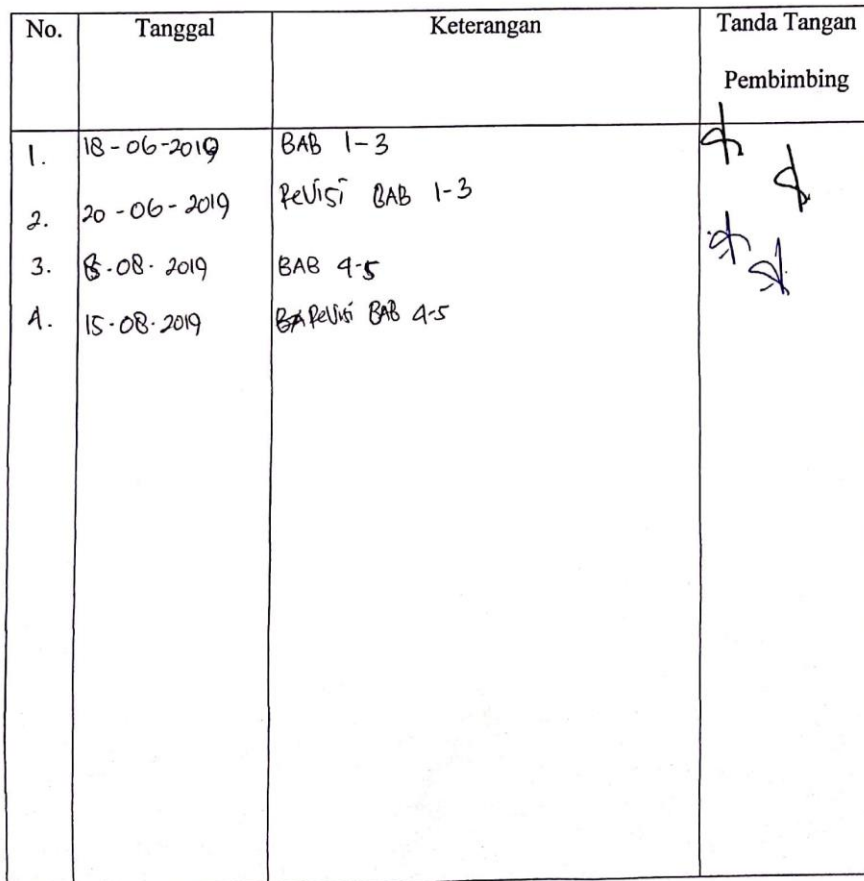 No. Tanggal Keterangan Tanda Tangan
Pembimbing
1. 18-06-2019 BAB 1-3
2. 20-06-2019 Revisi BAB 1-3
3. 8.08.2019 BAB 4-5
4. 15.08.2019 Revisi BAB 4-5